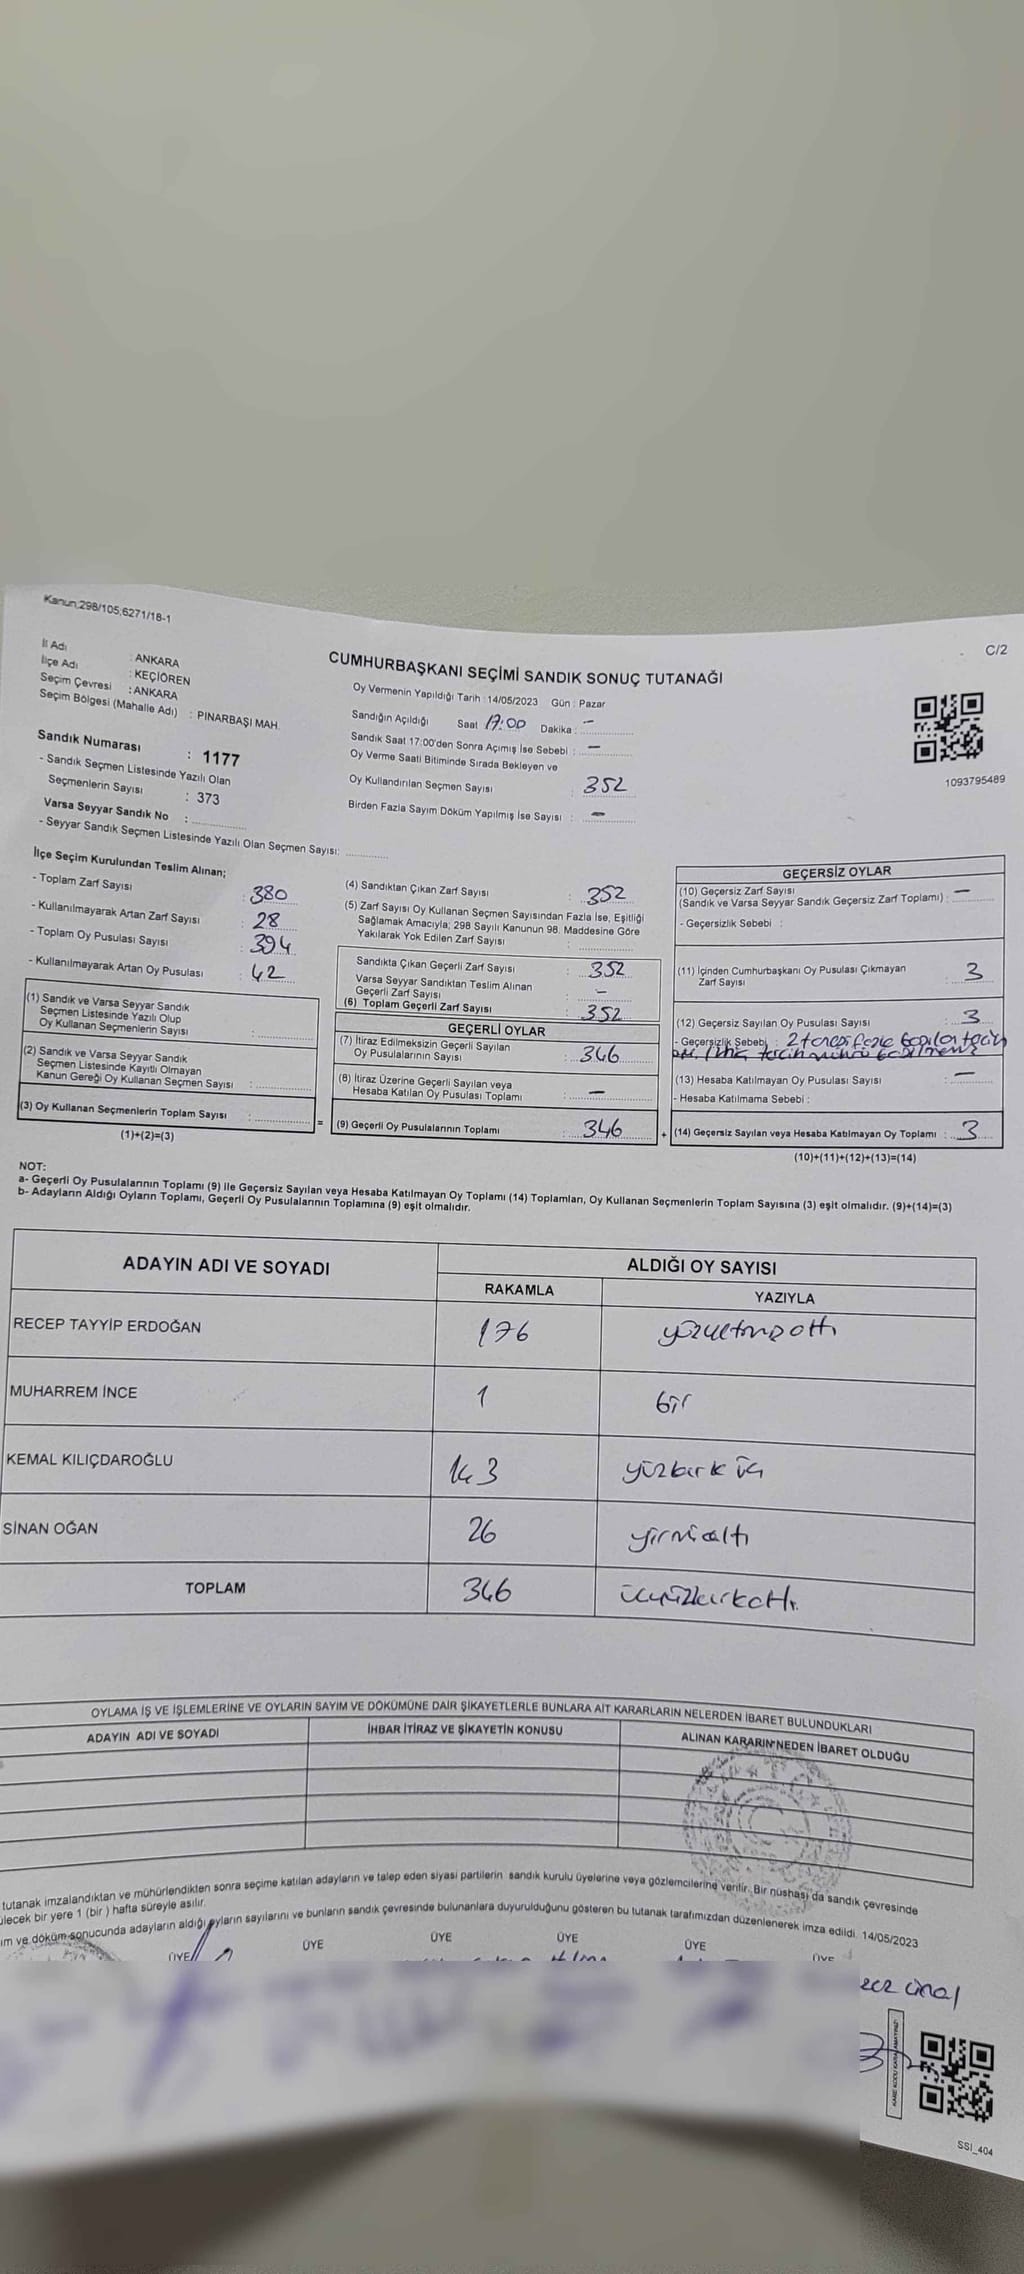 Kanun;298/105;6271/18-1
C/2
İl Adı : ANKARA
İlçe Adı : KEÇİÖREN
Seçim Çevresi : ANKARA
Seçim Bölgesi (Mahalle Adı) : PINARBAŞI MAH.
Sandık Numarası : 1177
- Sandık Seçmen Listesinde Yazılı Olan
Seçmenlerin Sayısı : 373
Varsa Seyyar Sandık No :
- Seyyar Sandık Seçmen Listesinde Yazılı Olan Seçmen Sayısı:
CUMHURBAŞKANI SEÇİMİ SANDIK SONUÇ TUTANAĞI
Oy Vermenin Yapıldığı Tarih : 14/05/2023 Gün : Pazar
Sandığın Açıldığı Saat 17:00 Dakika : -
Sandık Saat 17:00'den Sonra Açımış İse Sebebi : -
Oy Verme Saati Bitiminde Sırada Bekleyen ve
Oy Kullandırılan Seçmen Sayısı : 352
Birden Fazla Sayım Döküm Yapılmış İse Sayısı : -
1093795489
İlçe Seçim Kurulundan Teslim Alınan;
- Toplam Zarf Sayısı : 380
- Kullanılmayarak Artan Zarf Sayısı : 28
- Toplam Oy Pusulası Sayısı : 394
- Kullanılmayarak Artan Oy Pusulası : 42
(1) Sandık ve Varsa Seyyar Sandık
Seçmen Listesinde Yazılı Olup
Oy Kullanan Seçmenlerin Sayısı :
(2) Sandık ve Varsa Seyyar Sandık
Seçmen Listesinde Kayıtlı Olmayan
Kanun Gereği Oy Kullanan Seçmen Sayısı :
(3) Oy Kullanan Seçmenlerin Toplam Sayısı :
(1)+(2)=(3)
(4) Sandıktan Çıkan Zarf Sayısı : 352
(5) Zarf Sayısı Oy Kullanan Seçmen Sayısından Fazla İse, Eşitliği
Sağlamak Amacıyla; 298 Sayılı Kanunun 98. Maddesine Göre
Yakılarak Yok Edilen Zarf Sayısı :
Sandıkta Çıkan Geçerli Zarf Sayısı : 352
Varsa Seyyar Sandıktan Teslim Alınan
Geçerli Zarf Sayısı : -
(6) Toplam Geçerli Zarf Sayısı : 352
GEÇERLİ OYLAR
(7) İtiraz Edilmeksizin Geçerli Sayılan
Oy Pusulalarının Sayısı : 346
(8) İtiraz Üzerine Geçerli Sayılan veya
Hesaba Katılan Oy Pusulası Toplamı : -
= (9) Geçerli Oy Pusulalarının Toplamı : 346 +
GEÇERSİZ OYLAR
(10) Geçersiz Zarf Sayısı
(Sandık ve Varsa Seyyar Sandık Geçersiz Zarf Toplamı) : -
- Geçersizlik Sebebi :
(11) İçinden Cumhurbaşkanı Oy Pusulası Çıkmayan
Zarf Sayısı : 3
(12) Geçersiz Sayılan Oy Pusulası Sayısı : 3
- Geçersizlik Sebebi : 2
(13) Hesaba Katılmayan Oy Pusulası Sayısı : -
- Hesaba Katılmama Sebebi :
(14) Geçersiz Sayılan veya Hesaba Katılmayan Oy Toplamı : 3
(10)+(11)+(12)+(13)=(14)
NOT:
a- Geçerli Oy Pusulalarının Toplamı (9) ile Geçersiz Sayılan veya Hesaba Katılmayan Oy Toplamı (14) Toplamları, Oy Kullanan Seçmenlerin Toplam Sayısına (3) eşit olmalıdır. (9)+(14)=(3)
b- Adayların Aldığı Oyların Toplamı, Geçerli Oy Pusulalarının Toplamına (9) eşit olmalıdır.
ADAYIN ADI VE SOYADI
ALDIĞI OY SAYISI
RAKAMLA
YAZIYLA
RECEP TAYYİP ERDOĞAN 176 yüzyetmişaltı
MUHARREM İNCE 1 bir
KEMAL KILIÇDAROĞLU 143 yüzkırk üç
SİNAN OĞAN 26 yirmialtı
TOPLAM 346 üçyüzkırkaltı
OYLAMA İŞ VE İŞLEMLERİNE VE OYLARIN SAYIM VE DÖKÜMÜNE DAİR ŞİKAYETLERLE BUNLARA AİT KARARLARIN NELERDEN İBARET BULUNDUKLARI
ADAYIN ADI VE SOYADI
İHBAR İTİRAZ VE ŞİKAYETİN KONUSU
ALINAN KARARIN NEDEN İBARET OLDUĞU
tutanak imzalandıktan ve mühürlendikten sonra seçime katılan adayların ve talep eden siyasi partilerin sandık kurulu üyelerine veya gözlemcilerine verilir. Bir nüshası da sandık çevresinde
ülecek bir yere 1 (bir ) hafta süreyle asılır.
ım ve döküm sonucunda adayların aldığı oyların sayılarını ve bunların sandık çevresinde bulunanlara duyurulduğunu gösteren bu tutanak tarafımızdan düzenlenerek imza edildi. 14/05/2023
ÜYE ÜYE ÜYE ÜYE ÜYE ÜYE
SSI_404